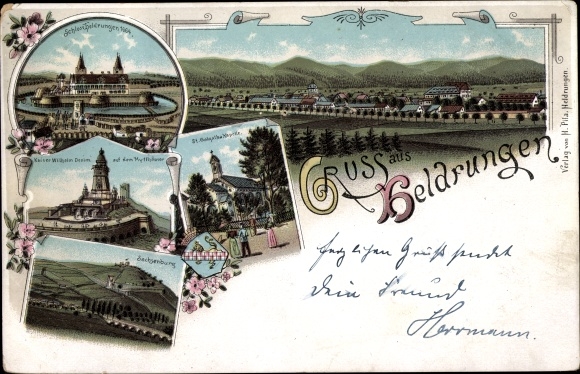 Schloss Heldrungen 1664
Kaiser Wilhelm Denkm. auf dem Kyffhäuser
Sachsenburg
Gruss aus
Heldrungen
Verlag von H. Pilz, Heldrungen.
herzlichen Gruß sendet
Dein Freund
Herrmann.